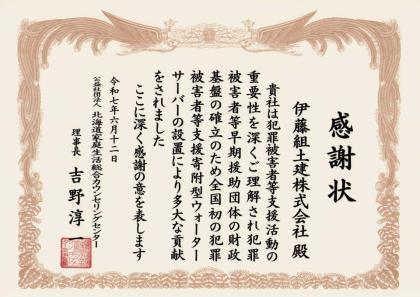 感謝状
伊藤組土建株式会社 殿
貴社は犯罪被害者等支援活動の
重要性を深くご理解され犯罪
被害者等早期援助団体の財政
基盤の確立のため全国初の犯罪
被害者等支援寄附型ウォーター
サーバーの設置により多大な貢献
をされました
ここに深く感謝の意を表します
令和七年六月十二日
公益社団法人 北海道家庭生活総合カウンセリングセンター
理事長 吉野淳一